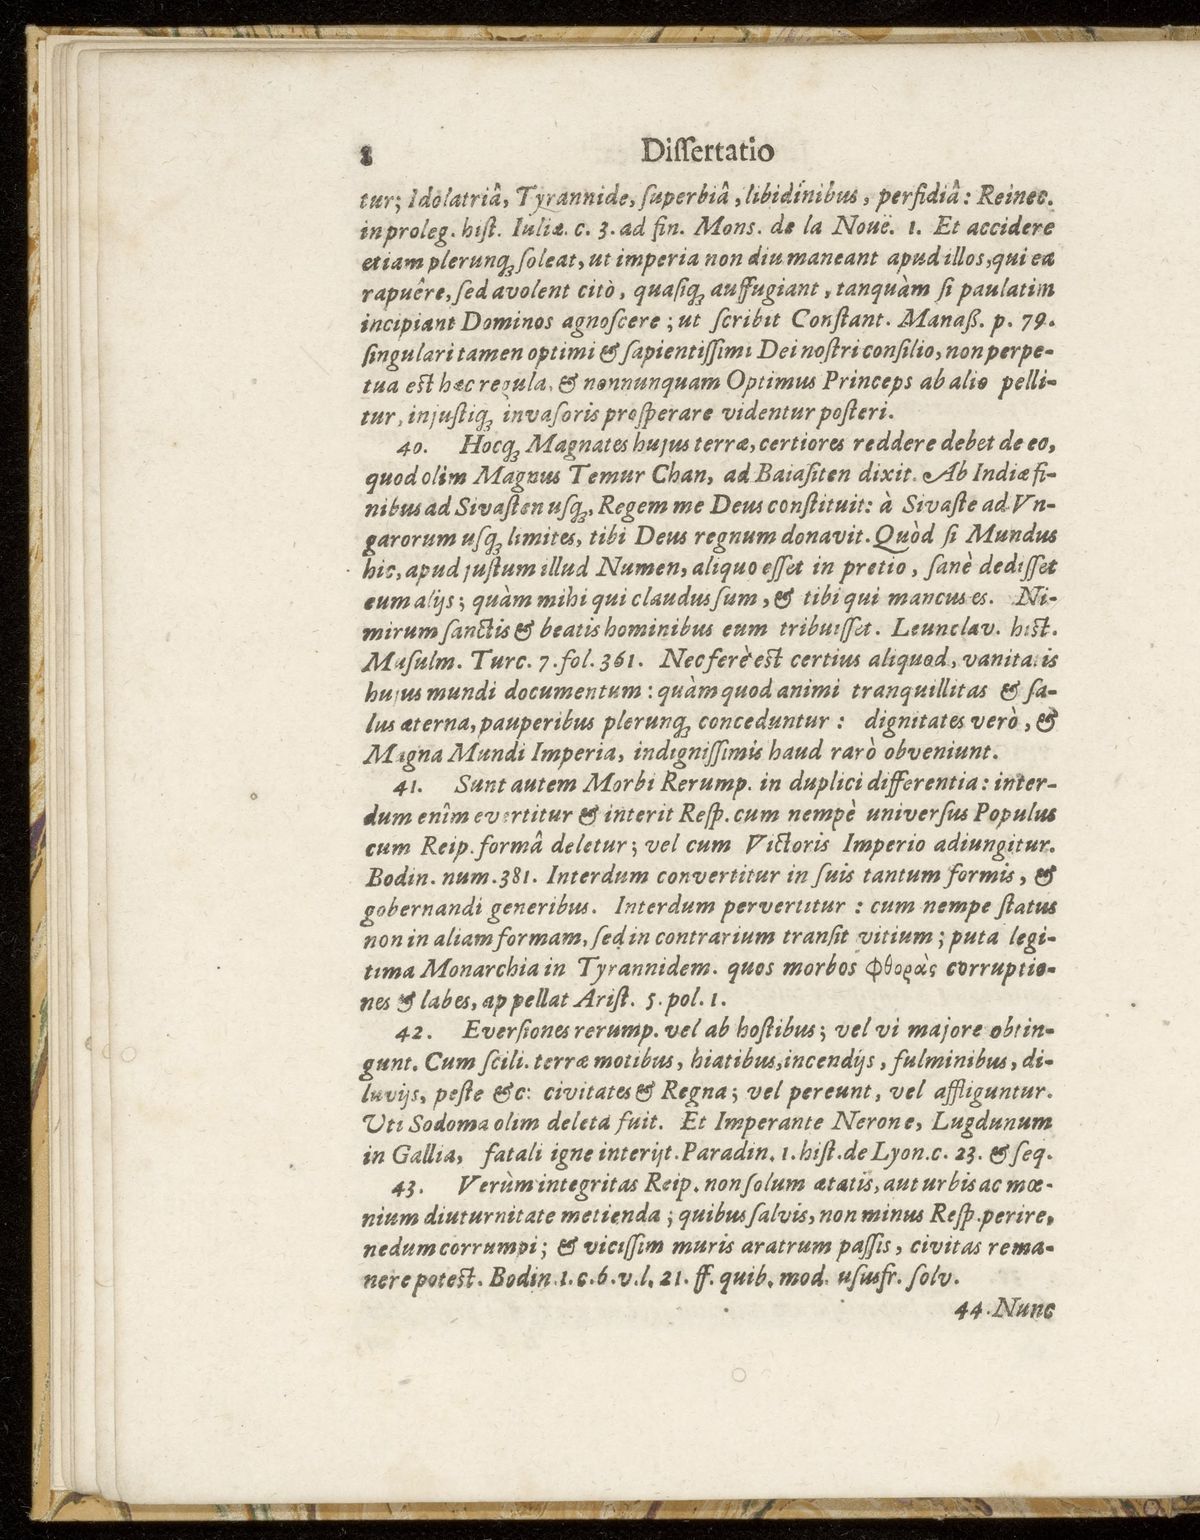 8 Dissertatio
tur; Idolatriâ, Tyrannide, superbiâ, libidinibus, perfidiâ: Reinec.
in proleg. hist. Iuliæ. c. 3. ad fin. Mons. de la Nouë. 1. Et accidere
etiam plerunq́; soleat, ut imperia non diu maneant apud illos, qui ea
rapuêre, sed avolent citò, quasiq́; auffugiant, tanquàm si paulatim
incipiant Dominos agnoscere; ut scribit Constant. Manaß. p. 79.
singulari tamen optimi & sapientissimi Dei nostri consilio, non perpe-
tua est hæc regula, & nonnunquam Optimus Princeps ab alio pelli-
tur, injustiq́; invasoris prosperare videntur posteri.
40. Hocq́; Magnates hujus terræ, certiores reddere debet de eo,
quod olim Magnus Temur Chan, ad Baiasiten dixit. Ab Indiæ fi-
nibus ad Sivasten usq́;, Regem me Deus constituit: à Sivaste ad Vn-
garorum usq́; limites, tibi Deus regnum donavit. Quòd si Mundus
hic, apud justum illud Numen, aliquo esset in pretio, sanè dedisset
eum alijs; quàm mihi qui claudus sum, & tibi qui mancus es. Ni-
mirum sanctis & beatis hominibus eum tribuisset. Leunclav. hist.
Musulm. Turc. 7. fol. 361. Nec ferè est certius aliquod, vanitatis
hujus mundi documentum: quàm quod animi tranquillitas & sa-
lus æterna, pauperibus plerunq́; conceduntur: dignitates verò, &
Magna Mundi Imperia, indignissimis haud rarò obveniunt.
41. Sunt autem Morbi Rerump. in duplici differentia: inter-
dum enîm evertitur & interit Resp. cum nempè universus Populus
cum Reip. formâ deletur; vel cum Victoris Imperio adiungitur.
Bodin. num. 381. Interdum convertitur in suis tantum formis, &
gobernandi generibus. Interdum pervertitur: cum nempe status
non in aliam formam, sed in contrarium transit vitium; puta legi-
tima Monarchia in Tyrannidem. quos morbos φθορὰς corruptio-
nes & labes, appellat Arist. 5. pol. 1.
42. Eversiones rerump. vel ab hostibus; vel vi majore obtin-
gunt. Cum scili. terræ motibus, hiatibus, incendijs, fulminibus, di-
luvijs, peste &c: civitates & Regna; vel pereunt, vel affliguntur.
Uti Sodoma olim deleta fuit. Et Imperante Nerone, Lugdunum
in Gallia, fatali igne interijt. Paradin. 1. hist. de Lyon. c. 23. & seq.
43. Verùm integritas Reip. non solum ætatis, aut urbis ac mœ-
nium diuturnitate metienda; quibus salvis, non minus Resp. perire,
nedum corrumpi; & vicissim muris aratrum passis, civitas rema-
nere potest. Bodin. 1. c. 6. v. l. 21. ff. quib. mod. usufr. solv.
44. Nunc